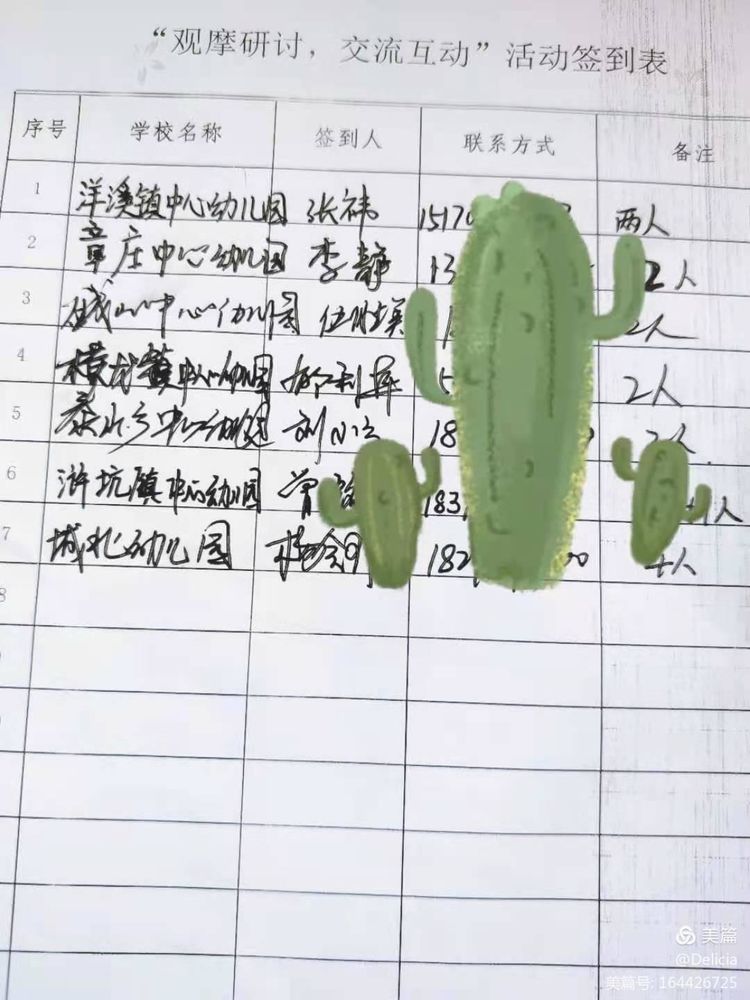 “观摩研讨，交流互动”活动签到表
序号 学校名称 签到人 联系方式 备注
1 洋溪镇中心幼儿园 张祎 15170 两人
2 章庄中心幼儿园 李静 13 2人
3 中心幼儿园 2人
4 横龙镇中心幼儿园 2人
5 泰山乡中心幼儿园 刘 18 2人
6 浒坑镇中心幼儿园 曾 183 人
7 城北幼儿园 182 0 人
8
美篇
@Delicia
美篇号: 164426725